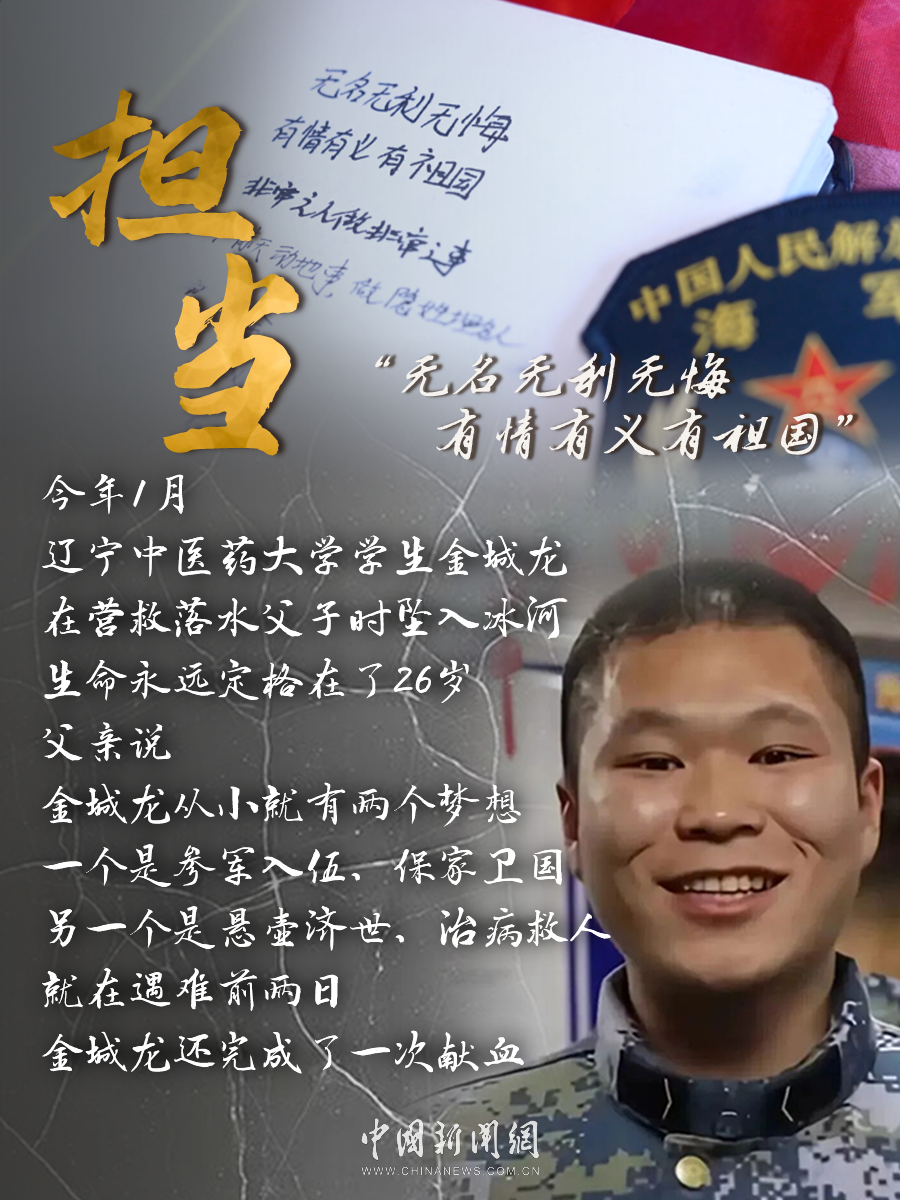 无名无利无悔
有情有义有祖国
非常之人做非常之事
天动地事,做隐姓埋名人
担
当
中国人民解放
海 军
“无名无利无悔
有情有义有祖国”
今年1月
辽宁中医药大学学生金城龙
在营救落水父子时坠入冰河
生命永远定格在了26岁
父亲说
金城龙从小就有两个梦想
一个是参军入伍、保家卫国
另一个是悬壶济世、治病救人
就在遇难前两日
金城龙还完成了一次献血
中國新聞網
WWW.CHINANEWS.COM.CN